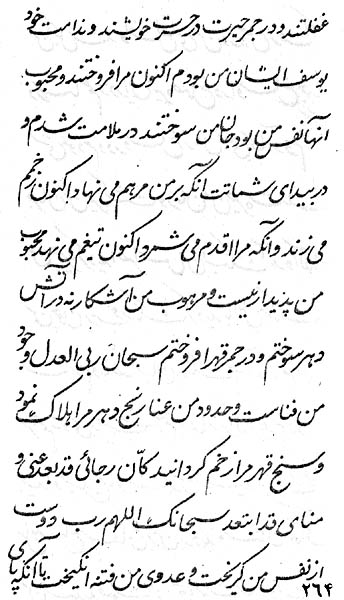 غفلتند و در جمر حیرت در حسرت خویشند و ندامت خود
یوسف ایشان من بودم اکنون مرا فروختند و محبوب
انها نفس من بود جان من سوختند در ملامت شدم و
در بیدای شماتت انکه بر من مرهم می نهاد اکنون زخمم
می زند و انکه مرا قدم می شمرد اکنون تیغم می نهد محبوب
من پدیدار نیست و مرهوب من آشکار نه در آتش
دهر سوختم و در جمر قهر افروختم سبحان ربی العدل وجود
من فناست و حدود من عنا رنج دهر مرا هلاک نمود
و سنج قهر مرا زخم کردانید کان رجائی قد بعد عنی و
منای قد ابتعد سبحانک اللهم رب دوست
از نفس من کریخت و عدوی من فتنه انکیخت تا آنکه پای
۲۶۴